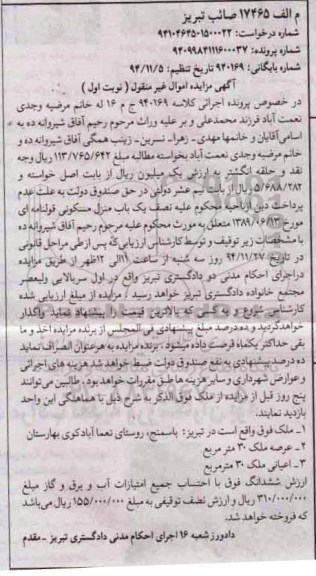 م الف ۱۷۴۶۵ صائب تبریز
شماره درخواست: ۹۴۱۰۴۶۴۵۰۱۵۰۰۰۲۲
شماره پرونده: ۹۴۰۹۹۸۴۱۱۱۶۰۰۰۳۷
شماره بایگانی: ۹۴۰۱۶۹ تاریخ تنظیم: ۹۴/۱۱/۵
آگهی مزایده اموال غیر منقول ( نوبت اول )
در خصوص پرونده اجرائی کلاسه ۹۴۰۱۶۹ ج م ۱۶ له خانم مرضیه وجدی
نعمت آباد فرزند محمدعلی و بر علیه وراث مرحوم رحیم آفاق شیروانه ده به
اسامی آقایان و خانمها مهدی - زهرا - نسرین - زینب همگی آفاق شیروانه ده و
خانم مرضیه وجدی نعمت آباد بخواسته مطالبه مبلغ ۱۱۳/۷۶۵/۶۴۲ ریال وجه
نقد و حلقه انگشتر به ارزش یک میلیون ریال از بابت اصل خواسته و
۵/۶۸۸/۲۸۲ ریال از بابت نیم عشر دولتی در حق صندوق دولت به علت عدم
پرداخت دین ازناحیه محکوم علیه نصف یک باب منزل مسکونی قولنامه ای
مورخ ۱۳۸۹/۰۶/۱۳ متعلق به مورث محکوم علیه مرحوم رحیم آفاق شیروانه ده
با مشخصات زیر توقیف و توسط کارشناس ارزیابی که پس ازطی مراحل قانونی
در تاریخ ۹۴/۱۱/۲۷ روز سه شنبه از ساعت ۱۱الی ۱۲ظهر از طریق مزایده
دراجرای احکام مدنی دو دادگستری تبریز واقع در اول سربالایی ولیعصر
مجتمع خانواده دادگستری تبریز خواهد رسید . مزایده از مبلغ ارزیابی شده
کارشناس شروع و به کسی که بالاترین قیمت را پیشنهاد نماید واگذار
خواهدگردید و ده درصد مبلغ پیشنهادی فی المجلس از برنده مزایده اخذ و ما
بقی حداکثر یکماه فرصت داده میشود . برنده مزایده به هرعنوان انصراف نماید
ده درصد پیشنهادی به نفع صندوق دولت ضبط خواهد شد هزینه های اجرائی
و عوارض شهرداری و سایر هزینه ها طبق مقررات خواهد بود . طالبین می توانند
پنج روز قبل از مزایده از ملک فوق الذکر به شرح ذیل با هماهنگی این واحد
بازدید نمایند.
۱ـ ملک فوق واقع است در تبریز: باسمنج، روستای نعما آبادکوی بهارستان
۲ـ عرصه ملک ۳۰ متر مربع
۳ـ اعیانی ملک ۳۰ مترمربع
ارزش ششدانگ فوق با احتساب جمیع امتیازات آب و برق و گاز مبلغ
۳۱۰/۰۰۰/۰۰۰ ریال و ارزش نصف توقیفی به مبلغ ۱۵۵/۰۰۰/۰۰۰ ریال می باشد
که فروخته خواهد شد.
دادورز شعبه ۱۶ اجرای احکام مدنی دادگستری تبریز ـ مقدم